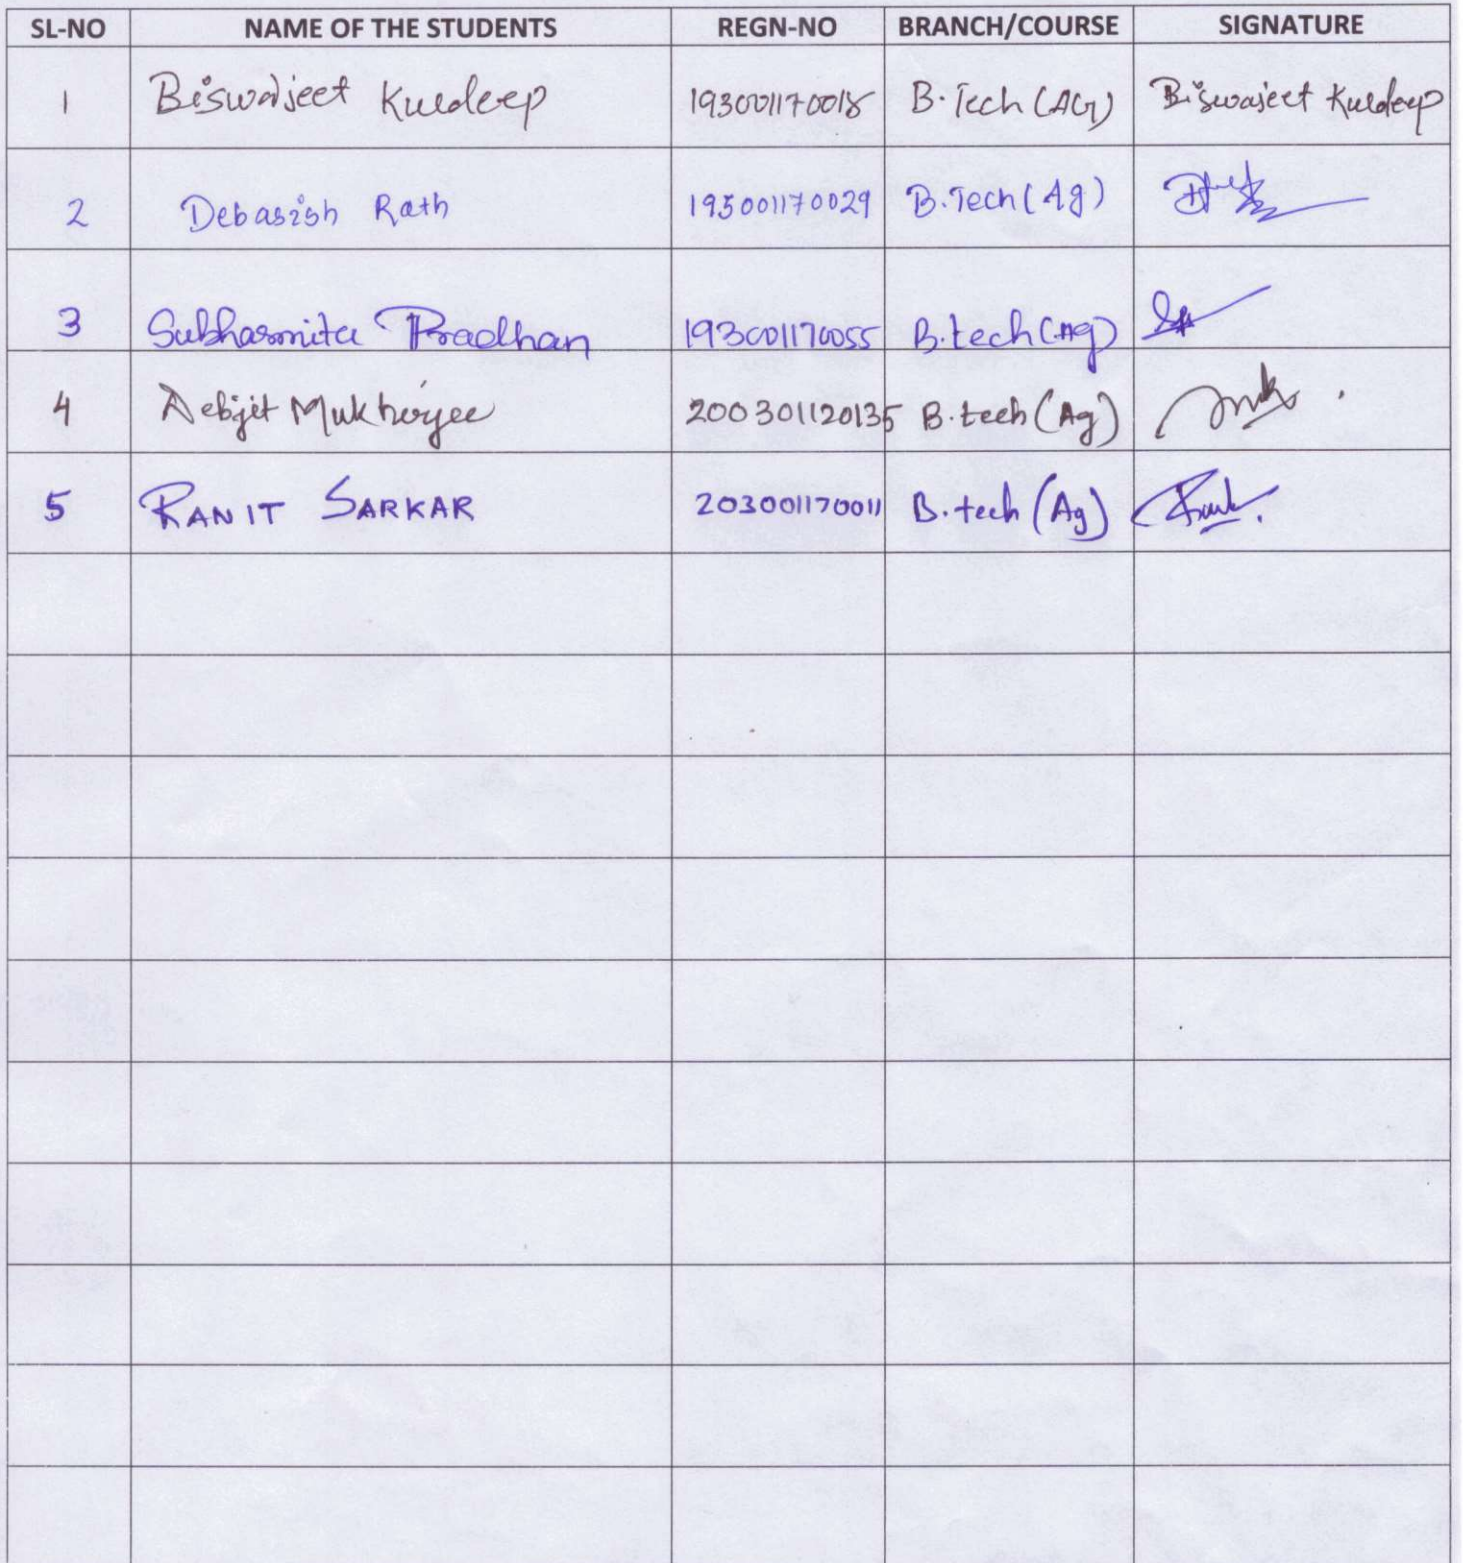 SL-NO NAME OF THE STUDENTS REGN-NO BRANCH/COURSE SIGNATURE
1 Biswajeet Kuldeep 193001170018 B.Tech (AG) Biswajeet Kuldeep
2 Debasish Rath 193001170029 B.Tech (Ag)
3 Subhasmita Pradhan 193001170055 B.tech (Ag)
4 Debjit Mukherjee 200301120135 B.tech (Ag)
5 RANIT SARKAR 203001170011 B.tech (Ag)